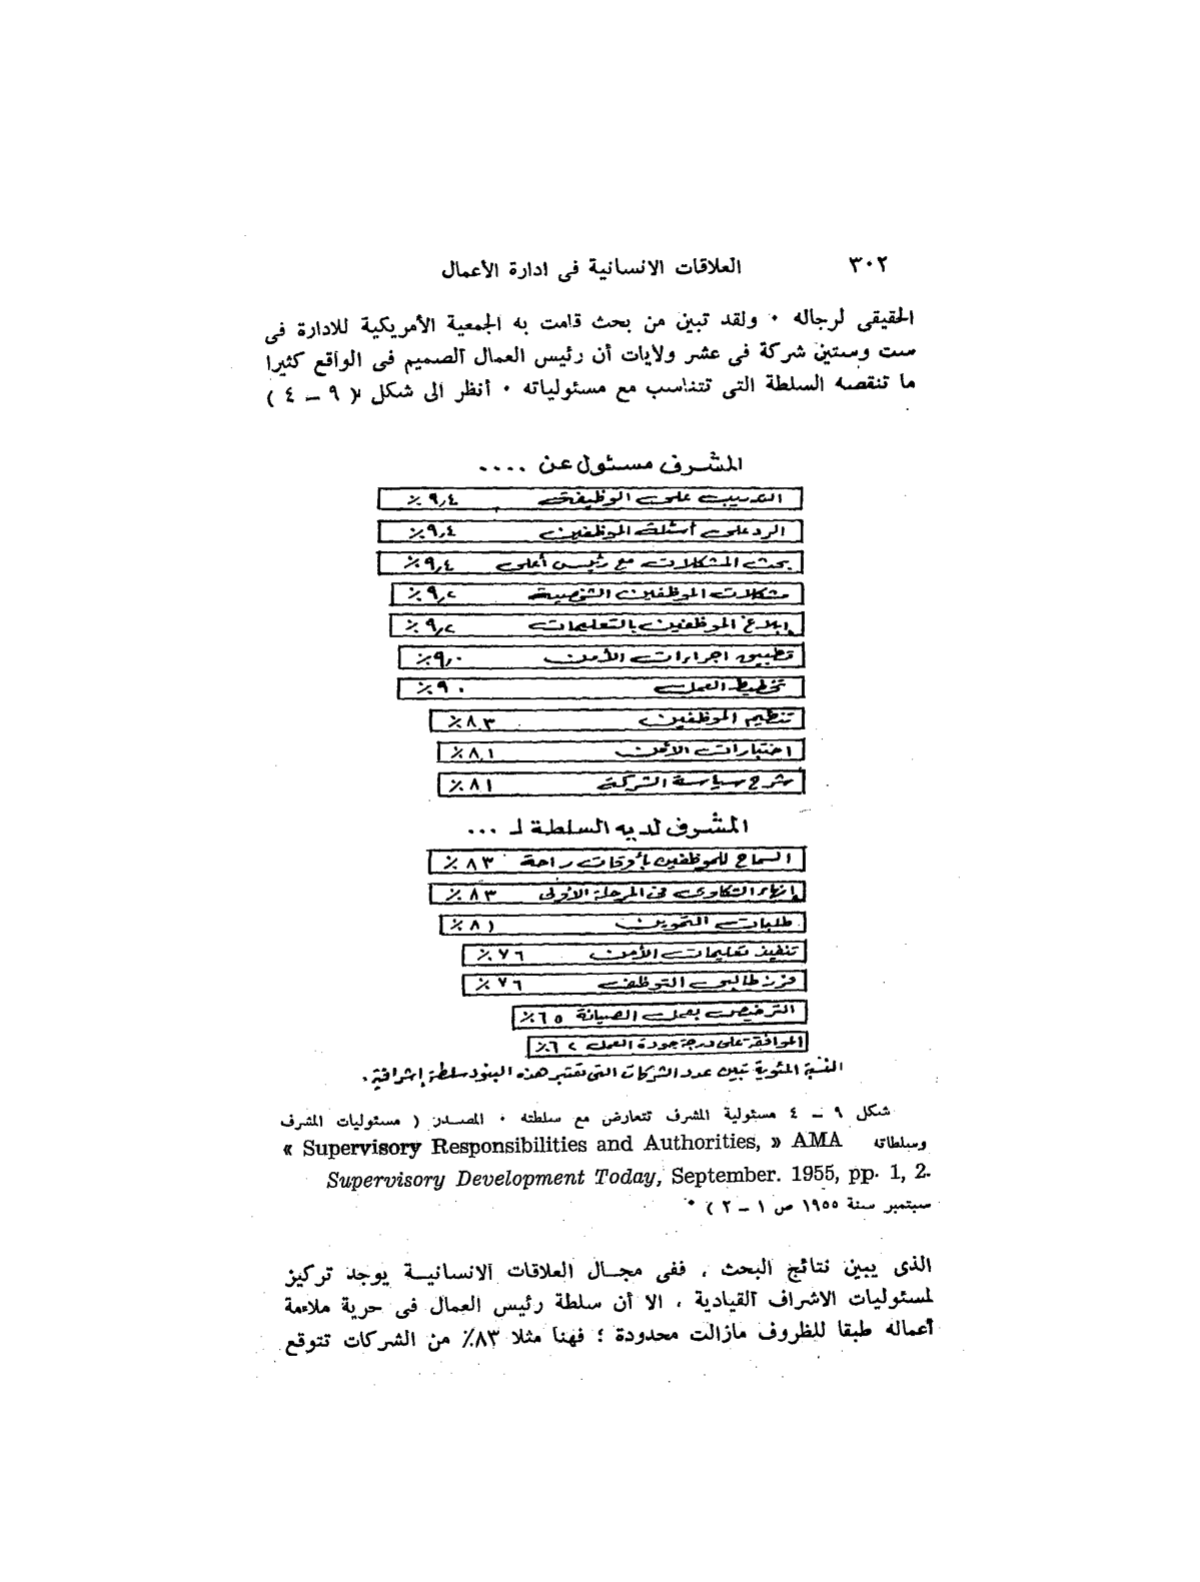 ٣٠٢ العلاقات الانسانية فى ادارة الأعمال
الحقيقى لرجاله ٠ ولقد تبين من بحث قامت به الجمعية الأمريكية للادارة فى
ست وستين شركة فى عشر ولايات أن رئيس العمال الصميم فى الواقع كثيرا
ما تنقصه السلطة التى تتناسب مع مسئولياته ٠ أنظر الى شكل ( ٩ – ٤ )
المشرف مسئول عن ....
التدريب على الوظيفة ٩,٤٪
الرد على أسئلة الموظفين ٩,٤٪
بحث المشكلات مع رئيس أعلى ٩,٤٪
مشكلات الموظفين الشخصية ٩,٢٪
إبلاغ الموظفين بالتعليمات ٩,٢٪
تطبيق اجراءات الأمن ٩,٠٪
تخطيط العمل ٩٠٪
تنظيم الموظفين ٨,٣٪
اختبارات الأمن ٨,١٪
شرح سياسة الشركة ٨١٪
المشرف لديه السلطة لـ ...
السماح للموظفين بأوقات راحة ٨٣٪
إنهاء الشكاوى فى المرحلة الأولى ٨٣٪
طلبات التموين ٨١٪
تنفيذ تعليمات الأمن ٧٦٪
فرز طالبى التوظف ٧٦٪
الترخيص بعمل الصيانة ٦٥٪
الموافقة على درجة جودة العمل ٦٢٪
النسبة المئوية تبين عدد الشركات التى تعتبر هذه البنود سلطة إشرافية.
شكل ٩ – ٤ مسئولية المشرف تتعارض مع سلطته ٠ المصدر ( مسئوليات المشرف
وسلطاته « Supervisory Responsibilities and Authorities, » AMA
Supervisory Development Today, September. 1955, pp. 1, 2.
سبتمبر سنة ١٩٥٥ ص ١ – ٢ ) ٠
الذى يبين نتائج البحث ، ففى مجال العلاقات الانسانية يوجد تركيز
لمسئوليات الاشراف القيادية ، الا أن سلطة رئيس العمال فى حرية ملاءمة
أعماله طبقا للظروف مازالت محدودة ؛ فهنا مثلا ٨٣٪ من الشركات تتوقع